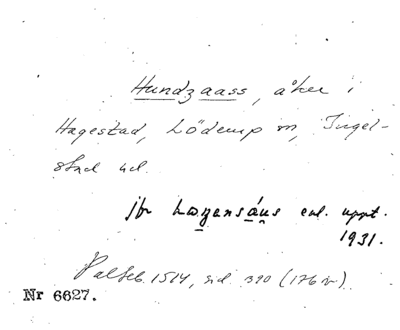 Hundzaass, åker i
Hagestad, Löderup sn, Ingel-
stad hd.
jfr enl. uppt.
1931.
Palteb. 1514, sid. 390 (176 v)
Nr 6627.